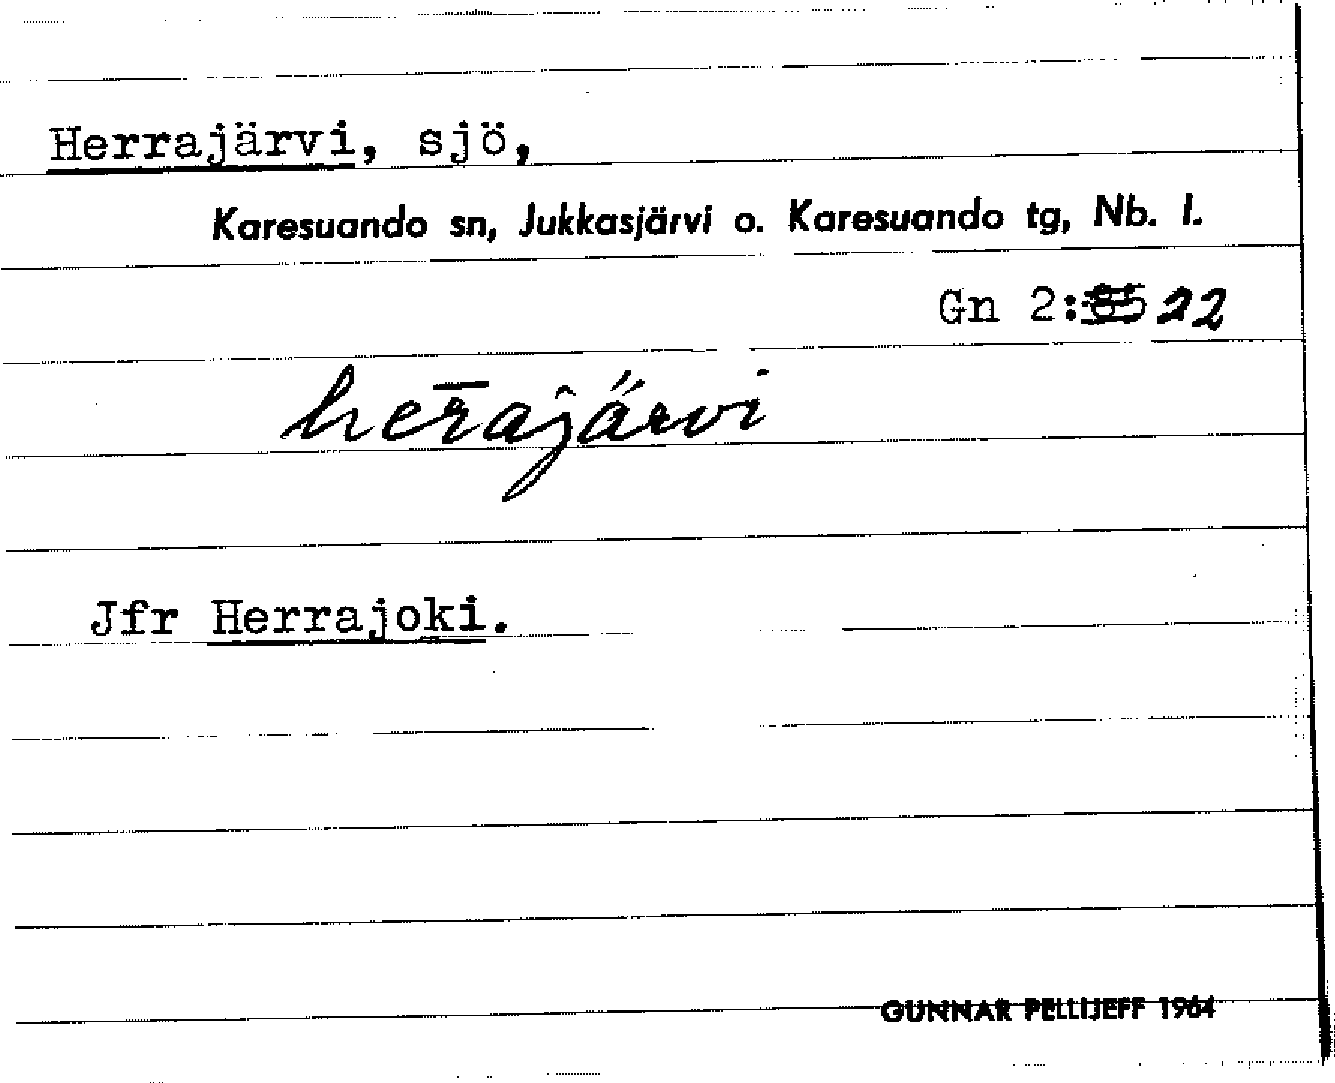 Herrajärvi, sjö,
Karesuando sn, Jukkasjärvi o. Karesuando tg, Nb. l.
Gn 2: 22
her̄aĵärvi
Jfr Herrajoki.
GUNNAR PELLIJEFF 1964